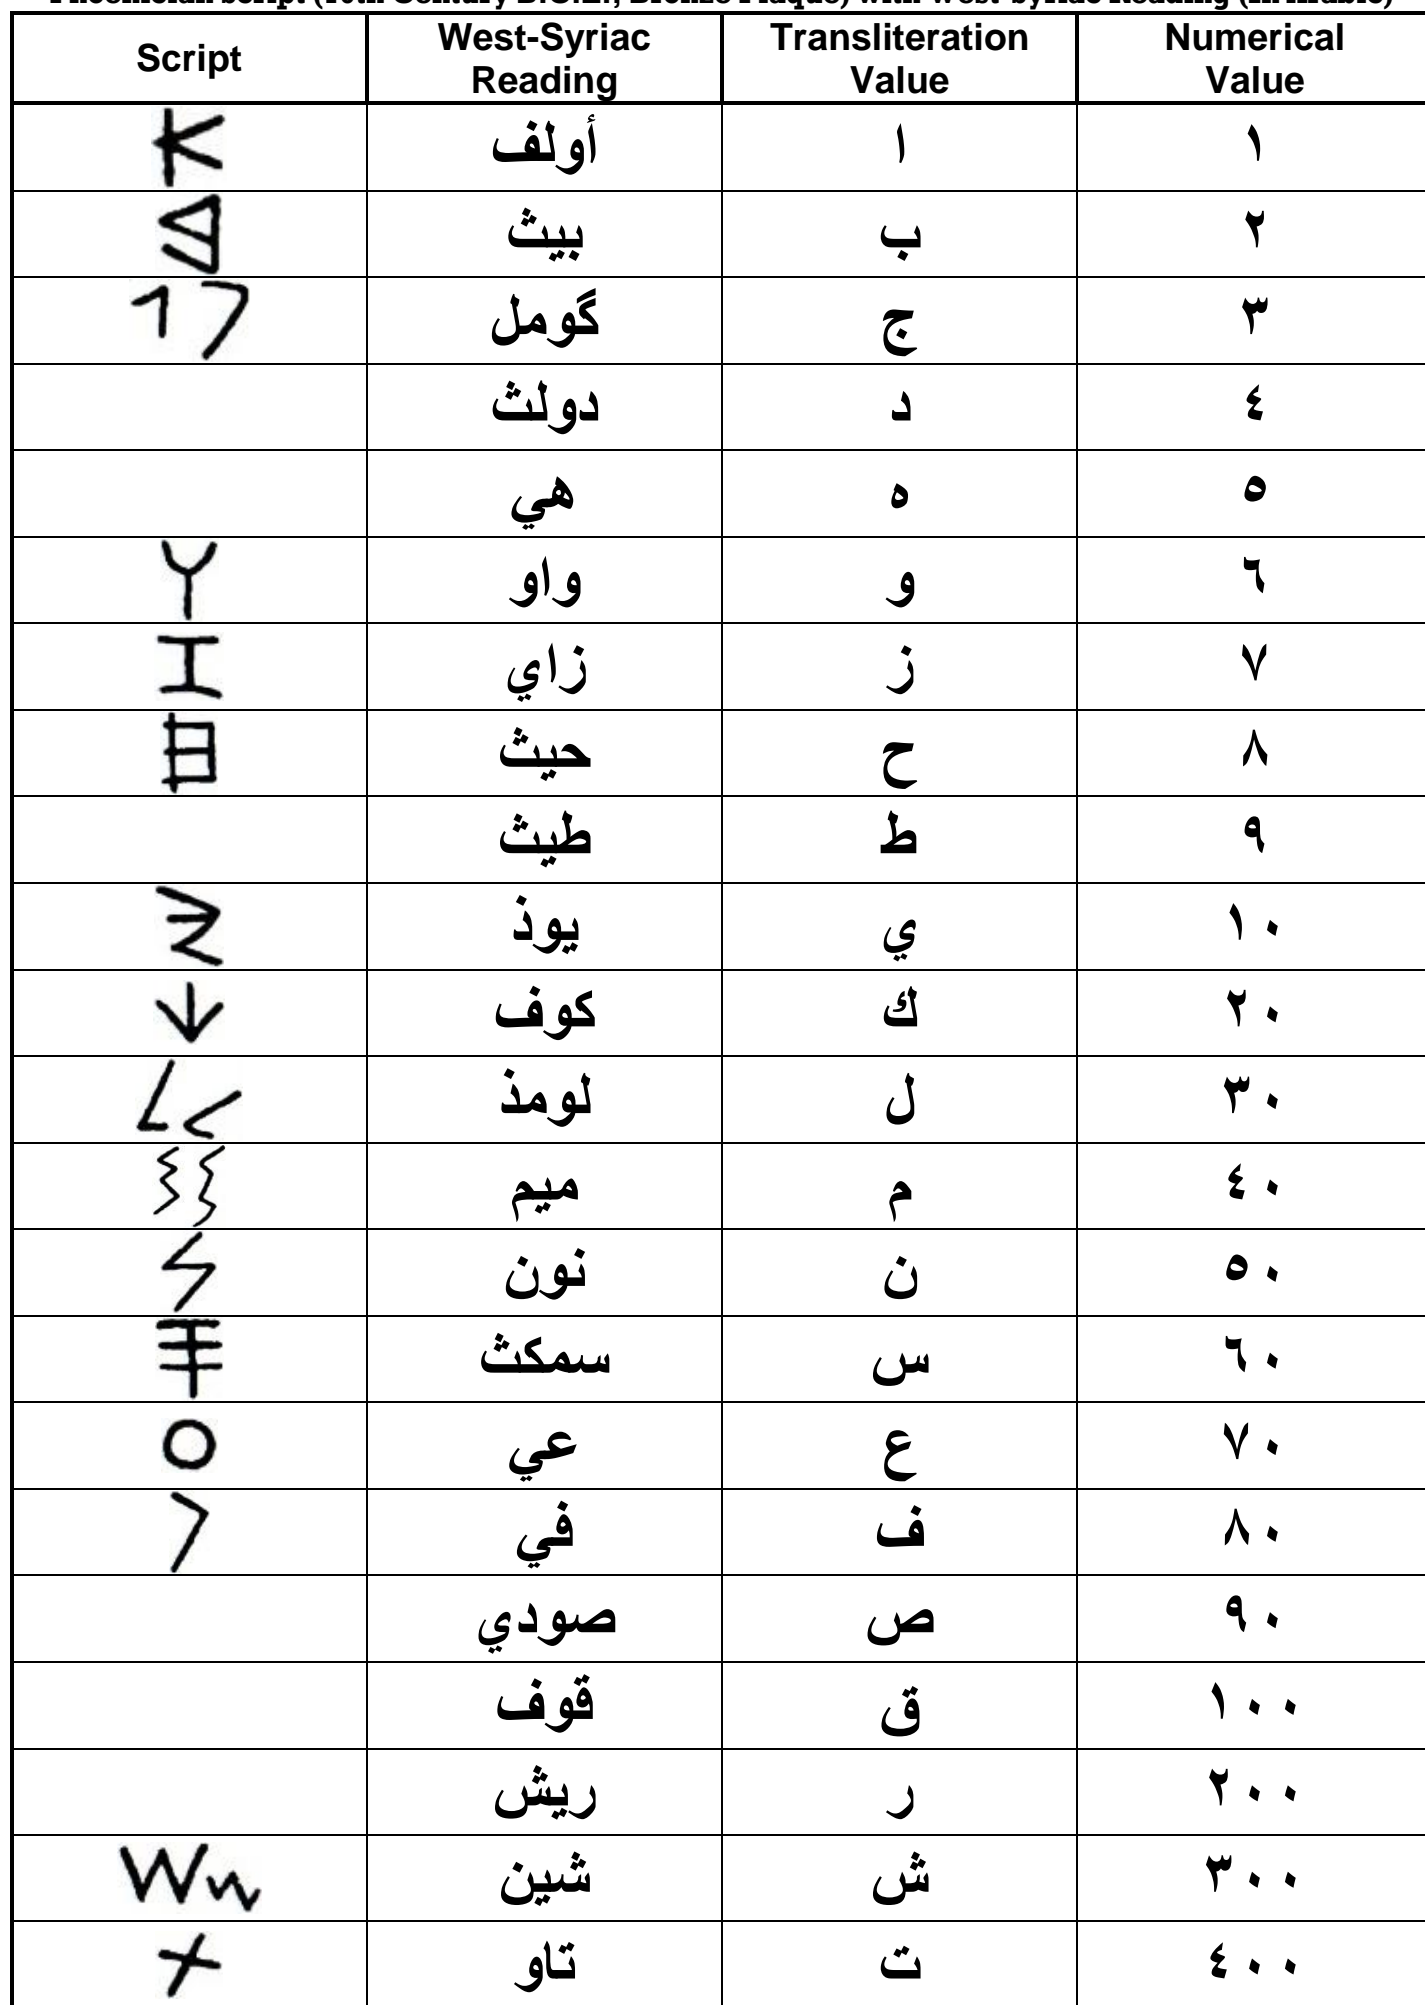 Phoenician Script (10th Century B.C.E., Bronze Plaque) with West-Syriac Reading (in Arabic)
Script West-Syriac Reading Transliteration Value Numerical Value
𐤀 أولف ا ١
𐤁 بيث ب ٢
𐤂 گومل ج ٣
دولث د ٤
هي ه ٥
𐤅 واو و ٦
𐤆 زاي ز ٧
𐤇 حيث ح ٨
طيث ط ٩
𐤉 يوذ ي ١٠
𐤊 كوف ك ٢٠
𐤋 لومذ ل ٣٠
𐤌 ميم م ٤٠
𐤍 نون ن ٥٠
𐤎 سمكث س ٦٠
𐤏 عي ع ٧٠
𐤐 في ف ٨٠
صودي ص ٩٠
قوف ق ١٠٠
ريش ر ٢٠٠
𐤔 شين ش ٣٠٠
𐤕 تاو ت ٤٠٠